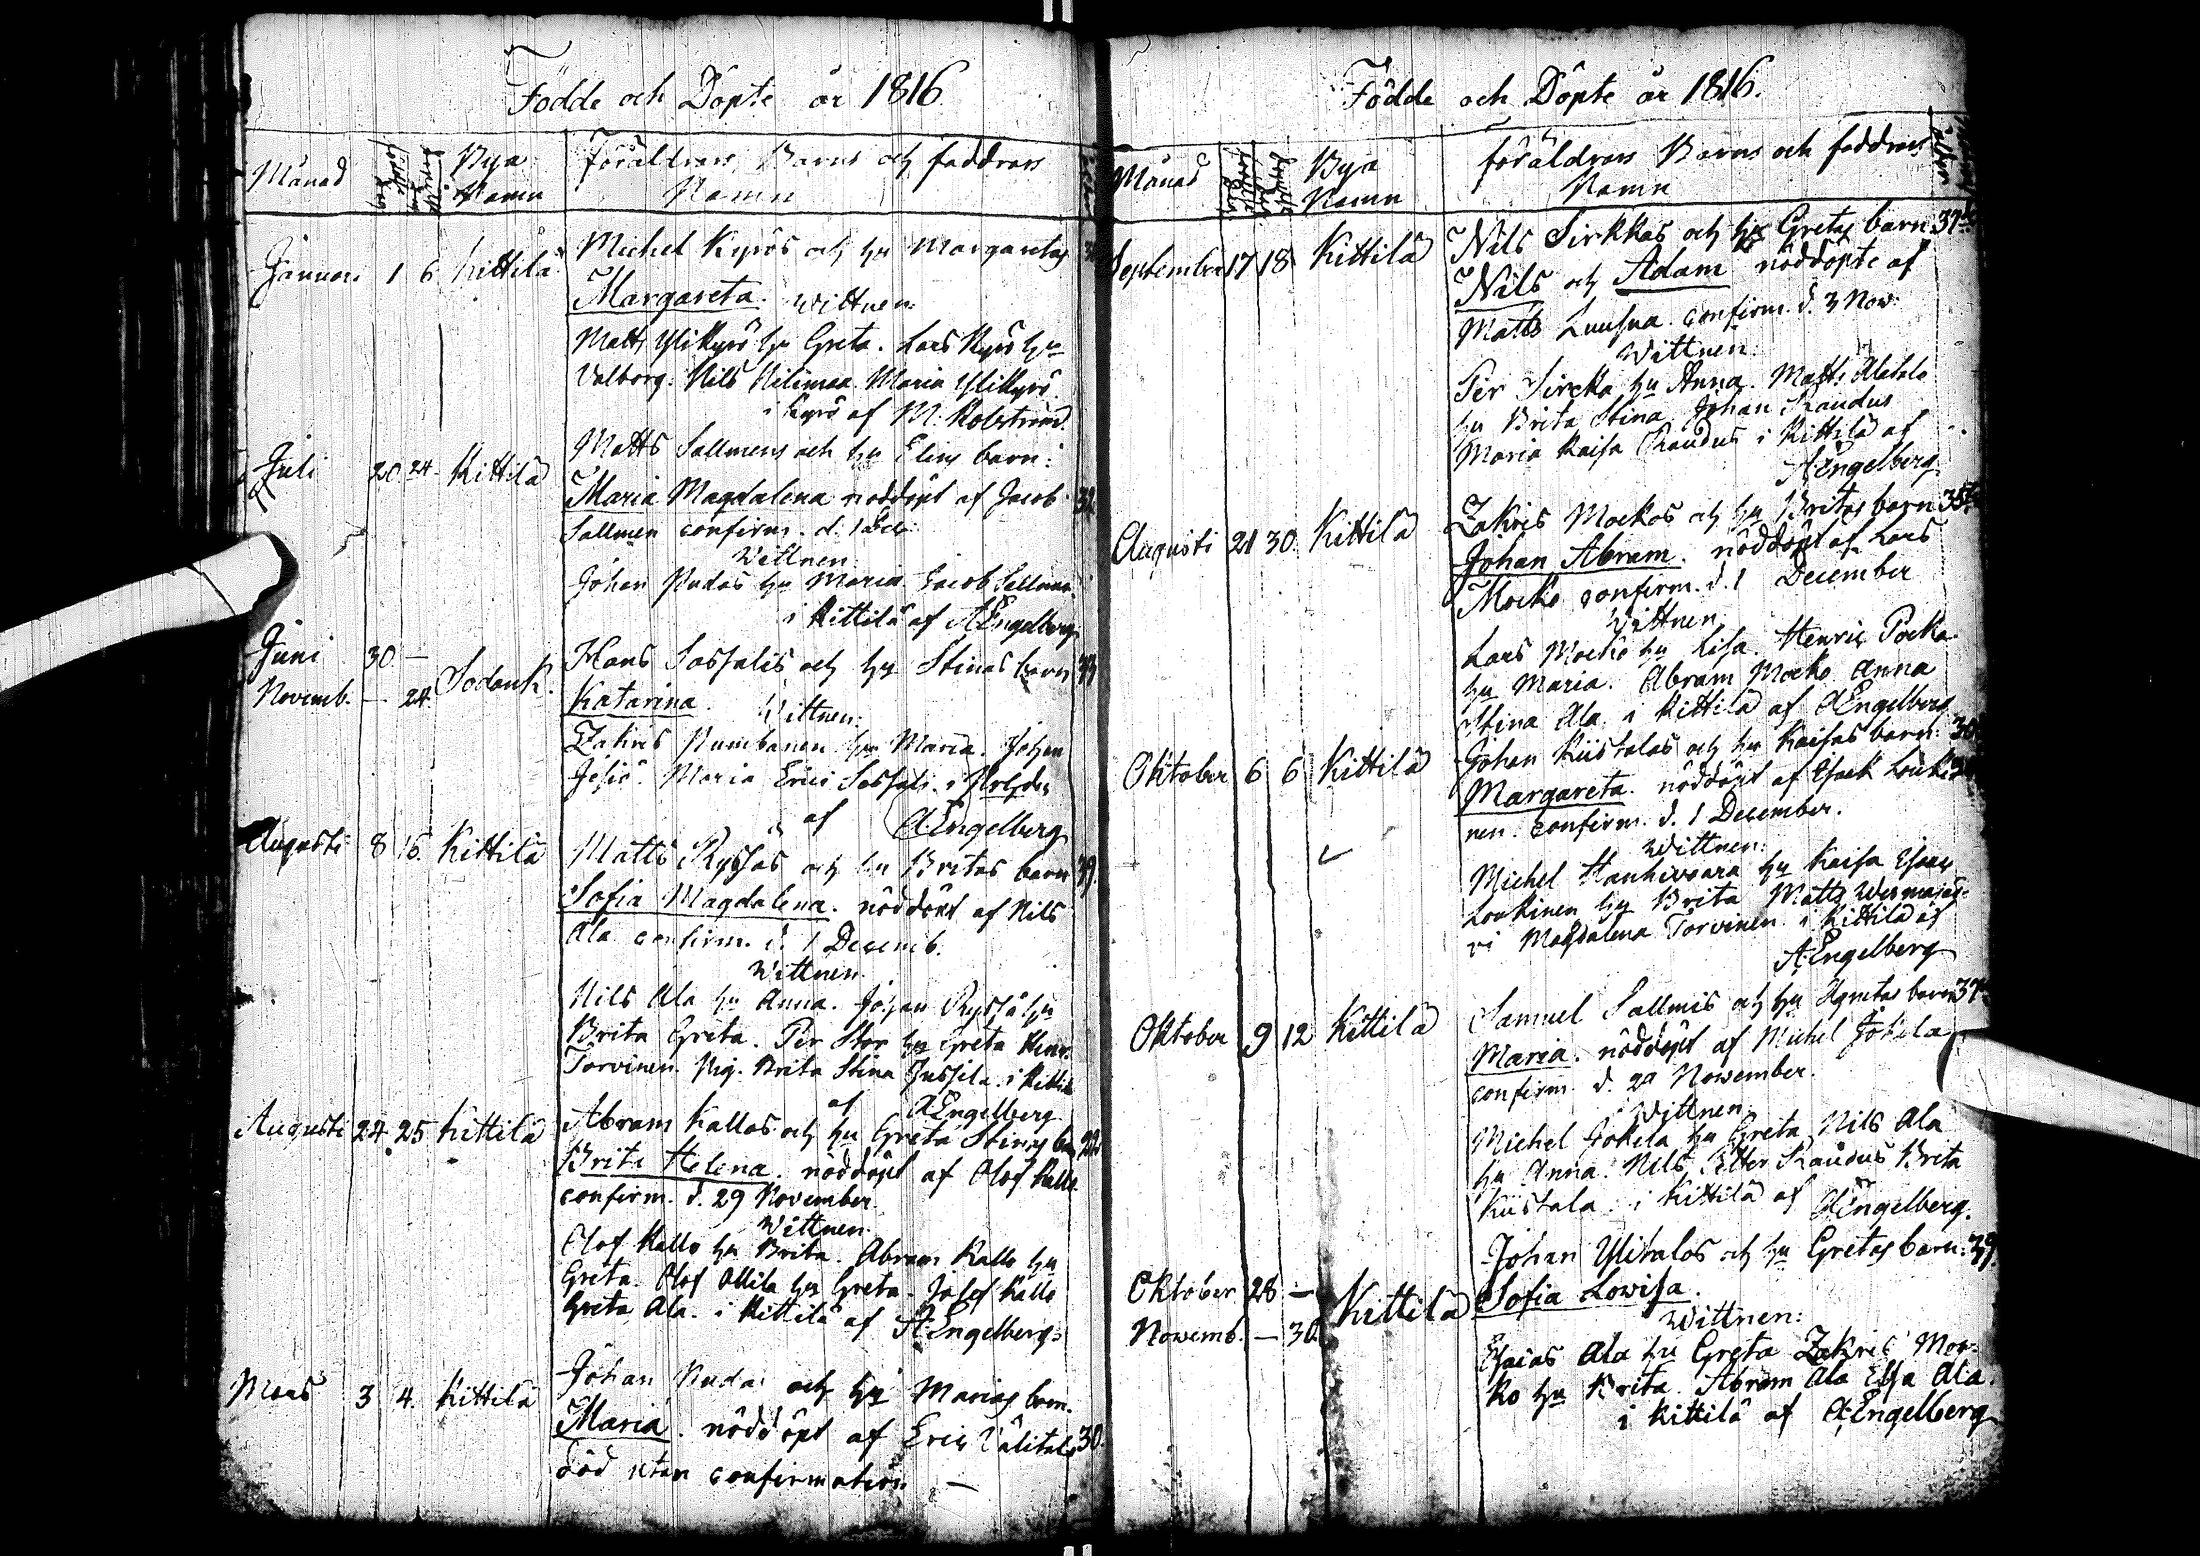 Födde och Döpte år 1816.
Månad Bya Namn Föräldrars Barns och faddrars Namn
Januari 1 6 Kittilä Michel Kyrös och hu Margaretas
Margareta. Wittnen:
Matts Ylikyrö hu Greta. Lars Kyrö hu
Valborg. Nils Nilimaa. Maria Ylikyrö.
i Kyrö af M. Kolström.
Juli 20 24 Kittilä Matts Sallmens och hu Elins barn:
Maria Magdalena nöddöpt af Jacob
Sallmen confirm. d. 1 Dec:
Wittnen
Johan Pudas hu Maria Jacob Sallmen
i Kittilä af A:Engelberg
Juni 30 —
Novemb. — 24. Sodank. Hans Sassalis och hu Stinas barn
Katarina. Wittnen:
Zakris Kumbanen hu Maria. Johan
Jesiö. Maria Erici Sassali. i
af A:Engelberg
Augusti 8 16. Kittilä Matts Ryssäs och hu Britas barn 39.
Sofia Magdalena. nöddöpt af Nils
Ala confirm. d. 1 Decemb.
Wittnen
Nils Ala hu Anna. Johan Ryssä hu
Brita Greta. Per Stor hu Greta Henr.
Torvinen. Pig. Brita Stina Jussila. i Kittilä
af A:Engelberg
Augusti 24. 25 Kittilä Abram Kallos och hu Greta Stinas
Brita Helena. nöddöpt af Olof Kallo
confirm. d. 29 November.
Wittnen:
Olof Kallo hu Brita. Abram Kallo hu
Greta. Olof Ollila hu Greta. Josef Kallo
Greta Ala. i Kittilä af A:Engelberg:
Mars 3 4. Kittilä Johan Pudas och hu Marias barn.
Maria. nöddöpt af Eric Välitalo 30.
död utan confirmation. —
Födde och Döpte år 1816.
Månad Bya Namn föräldrars Barns och faddrars Namn
September 17 18 Kittilä Nils Sirkkas och hu Gretas barn 37
Nils och Adam nöddöpte af
Matts Luusua. confirm. d. 3 Nov:
Wittnen:
Per Sirckka hu Anna. Matts Alatalo
hu Brita Stina. Johan Raudus
Maria Kaisa Raudus i Kittilä af
A:Engelberg
Augusti 21 30 Kittilä Zakris Mockos och hu Britas barn 35
Johan Abram. nöddöpt af Lars
Mocko confirm. d. 1 December
Wittnen
Lars Mocko hu Lisa. Henric Pocka
hu Maria. Abram Mocko Anna
Stina Ala. i Kittilä af A:Engelberg
Oktober 6 6 Kittilä Johan Kiistalas och hu Kaisas barn:
Margareta. nöddöpt af Esack Louki
nen. confirm. d. 1 December.
Wittnen:
Michel Hanhivaara hu Kaisa Esaac
Loukinen hu Brita Matts Wesmajär-
vi Magdalena Torvinen. i Kittilä af
A:Engelberg
Oktober 9 12 Kittilä Samuel Sallmis och hu Agnetas barn 37
Maria. nöddöpt af Michel Jokela
confirm. d. 29 November.
Wittnen
Michel Jokela hu Greta Nils Ala
hu Anna. Nils Petter Raudus Brita
Kiistala. i Kittilä af A:Engelberg.
Oktober 28 — Johan Ylitalos och hu Gretas barn: 39.
Novemb. — 30 Kittilä Sofia Lowisa.
Wittnen:
Esaias Ala hu Greta Zakris Moc-
ko hu Brita. Abram Ala Elsa Ala.
i Kittilä af A:Engelberg